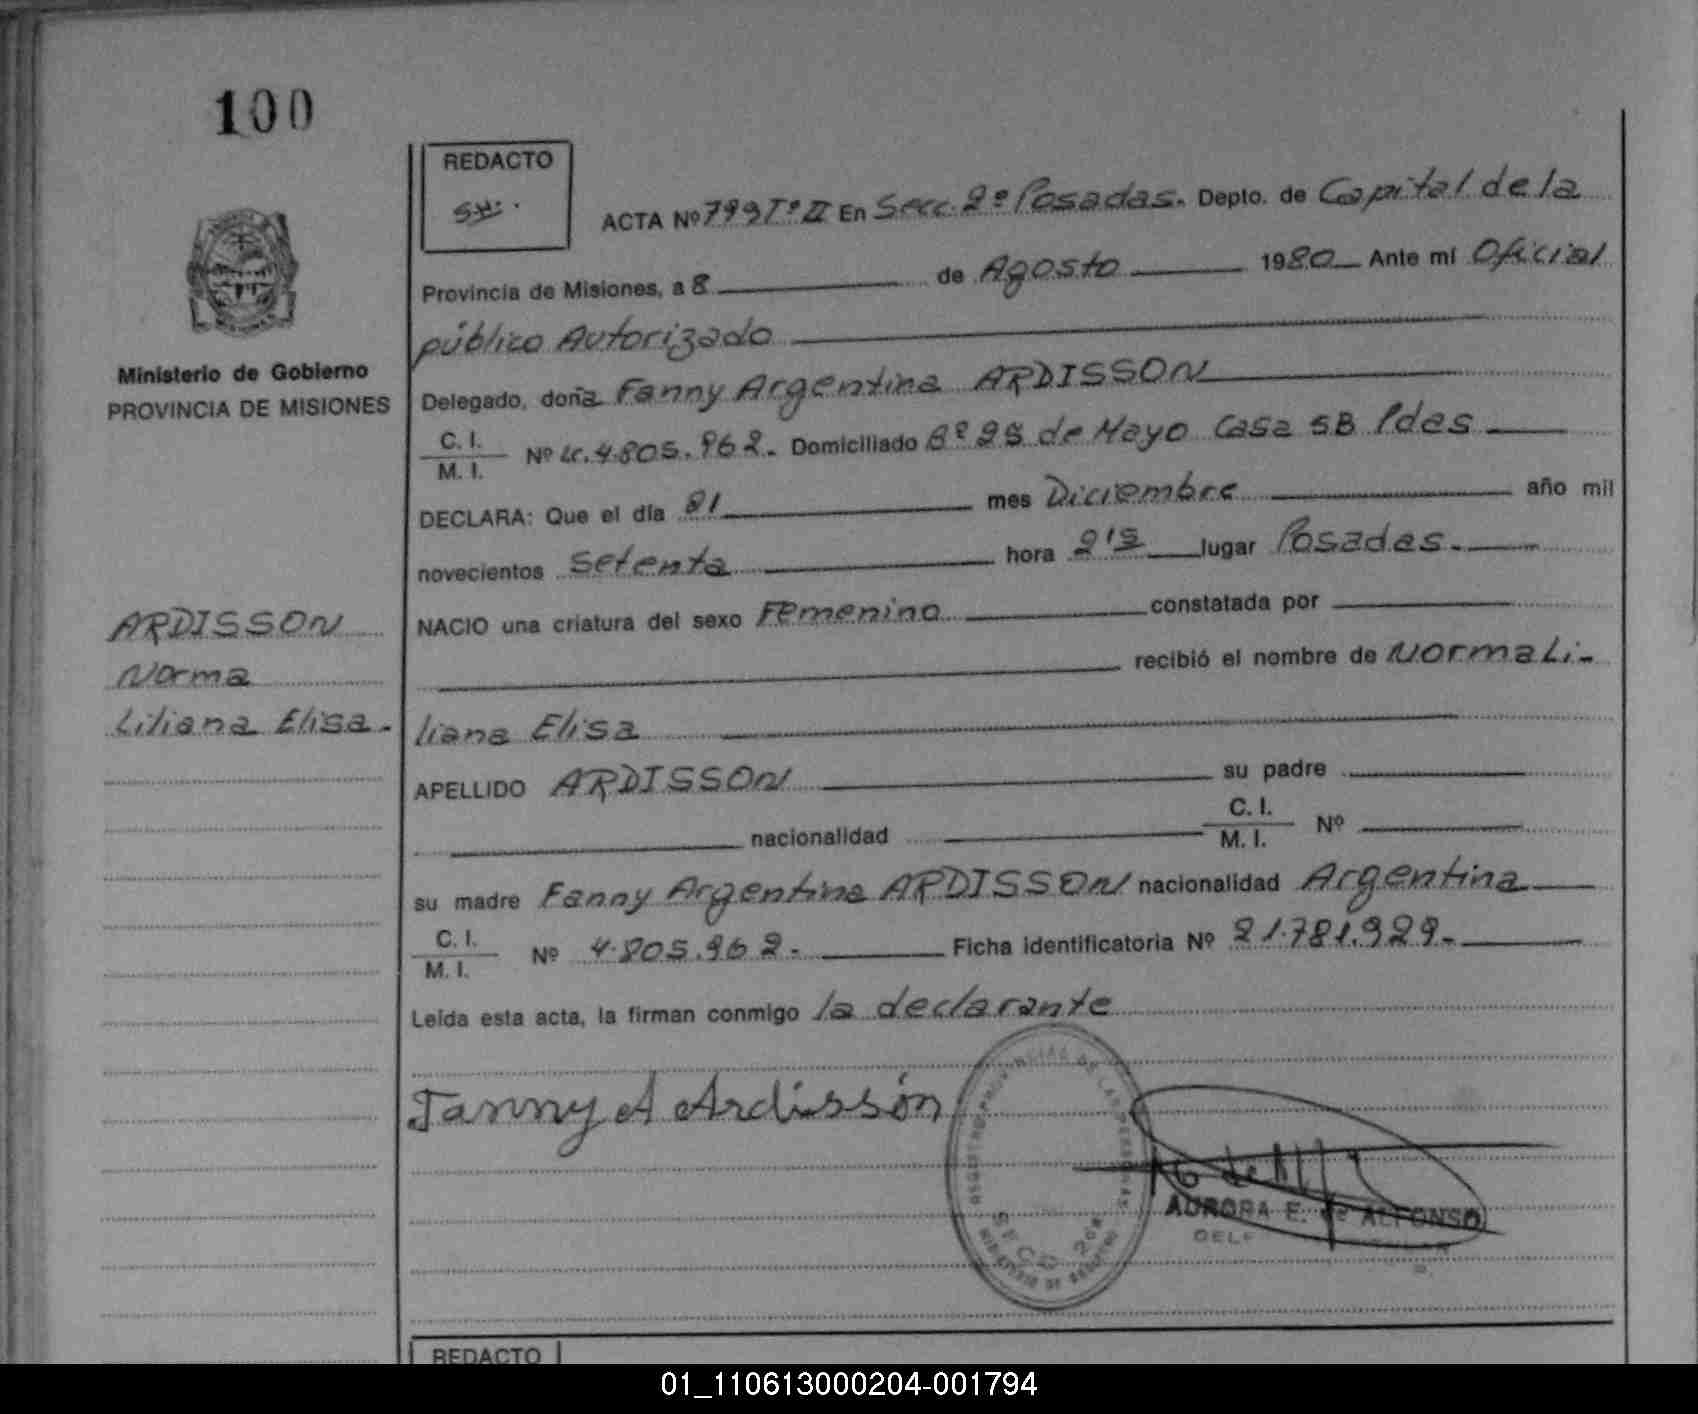 100
REDACTO
ACTA Nº 799 Tº II En Secc. 2º Posadas. Depto. de Capital de la
Provincia de Misiones, a 8 de Agosto 1980 Ante mi Oficial
público Autorizado
Ministerio de Gobierno
PROVINCIA DE MISIONES
Delegado, doña Fanny Argentina ARDISSON
C. I.
M. I.
Nº Lc. 4.805.962. Domiciliado Bº 25 de Mayo Casa 5B Pdas
DECLARA: Que el día 21 mes Diciembre año mil
novecientos Setenta hora lugar Posadas.
NACIO una criatura del sexo Femenino constatada por
recibió el nombre de Norma Li-
liana Elisa
ARDISSON
Norma
Liliana Elisa.
APELLIDO ARDISSON su padre
nacionalidad C. I.
M. I.
Nº
su madre Fanny Argentina ARDISSON nacionalidad Argentina
C. I.
M. I.
Nº 4.805.962. Ficha identificatoria Nº 21.781.929.
Leída esta acta, la firman conmigo la declarante
Fanny A Ardissón
AURORA E. de ALFONSO
REDACTO
01_110613000204-001794